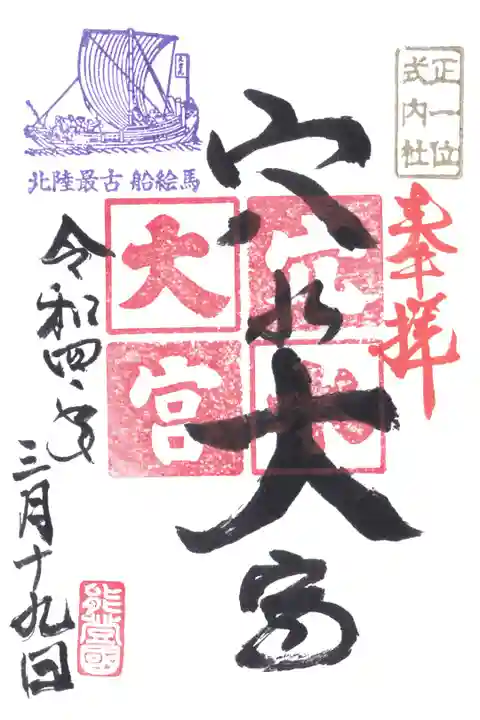 正一位
式内社
奉拝
穴水大宮
穴水
大宮
北陸最古 船絵馬
令和四年
三月十九日
能登國